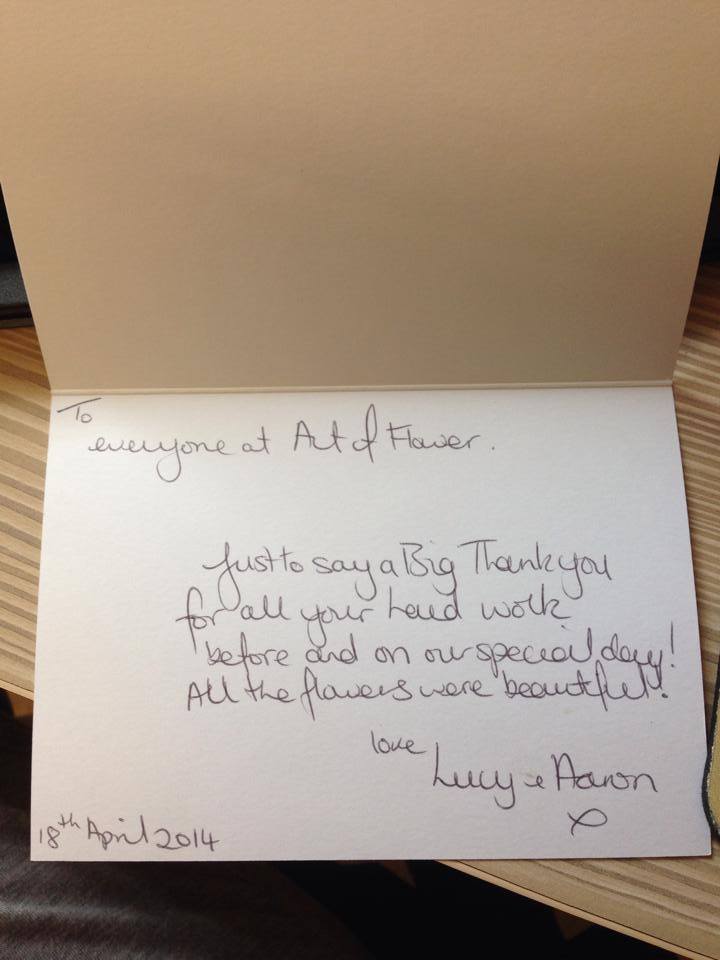 To
everyone at Art of Flower.
Just to say a Big Thank you
for all your hard work
before and on our special day!
All the flowers were beautiful!
love
Lucy & Aaron
x
18th April 2014